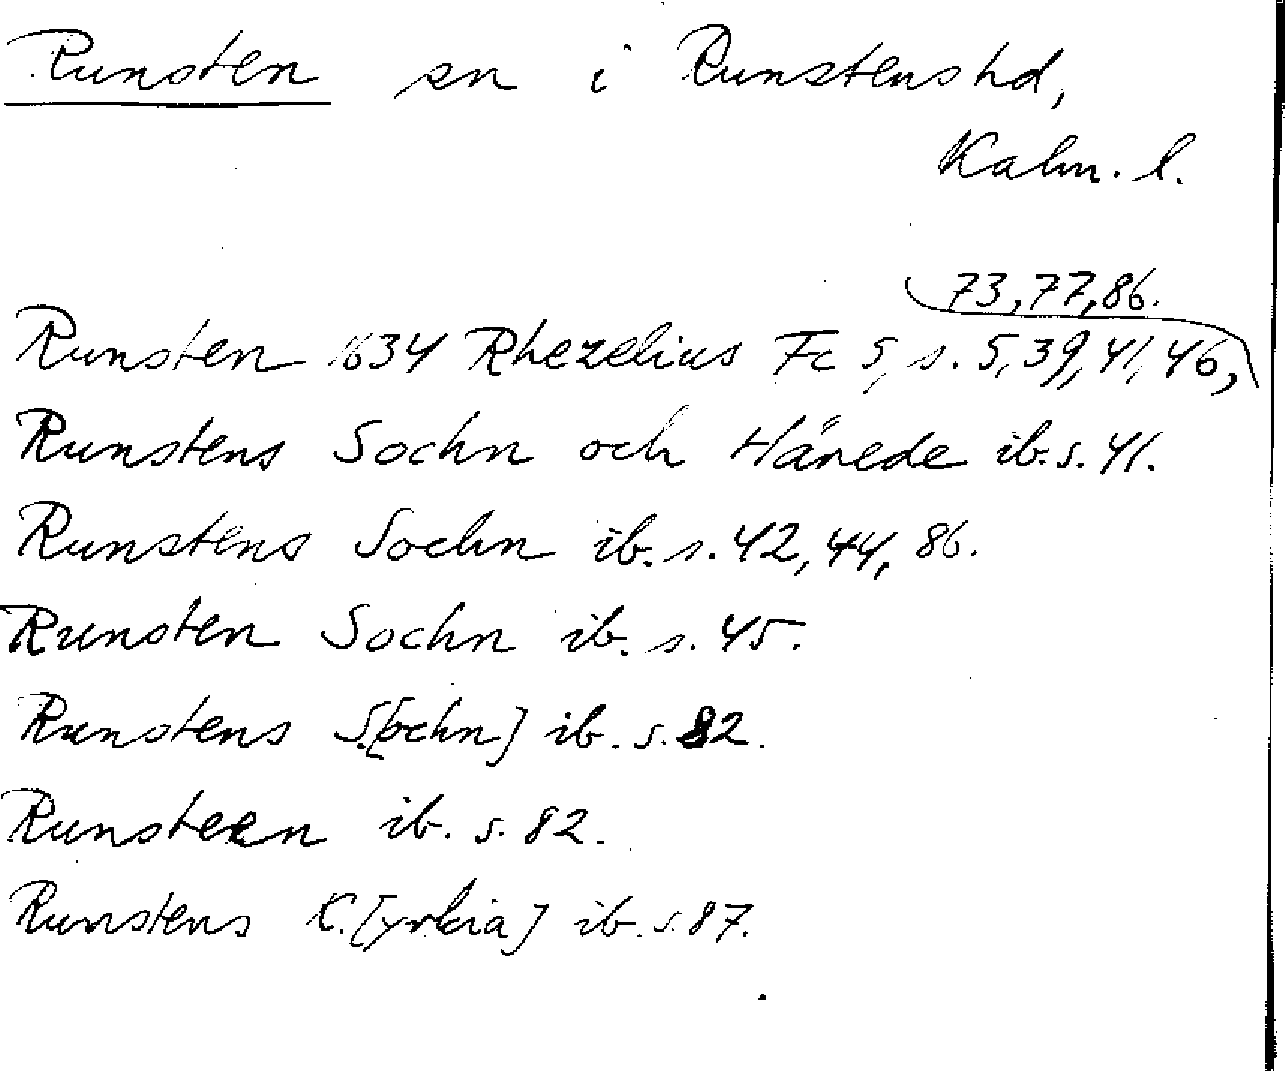 Runsten sn i Runstens hd,
Kalm. l.
73, 77, 86.
Runsten 1634 Rhezelius Fc 5, s. 5, 39, 41, 46,
Runstens Sochn och Härede ib. s. 41.
Runstens Sochn ib. s. 42, 44, 86.
Runsten Sochn ib. s. 45.
Runstens S.[ochn] ib. s. 82.
Runsteen ib. s. 82.
Runstens K.[yrkia] ib. s. 87.